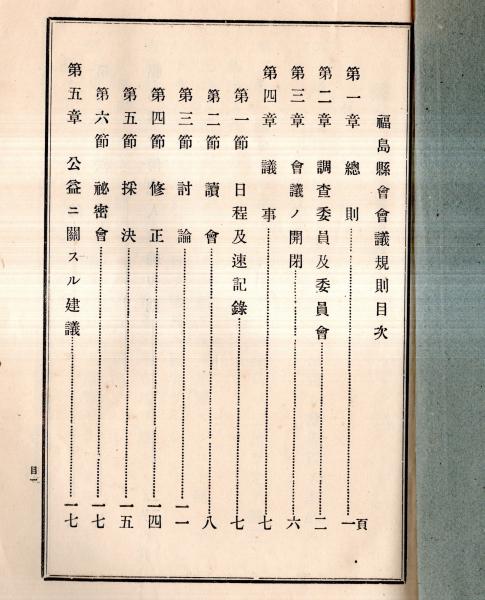 福島縣會會議規則目次
第一章 總則……………一頁
第二章 調査委員及委員會……………二
第三章 會議ノ開閉……………六
第四章 議事……………七
第一節 日程及速記錄……………七
第二節 讀會……………八
第三節 討論……………一一
第四節 修正……………一四
第五節 採決……………一五
第六節 祕密會……………一七
第五章 公益ニ關スル建議……………一七
目一